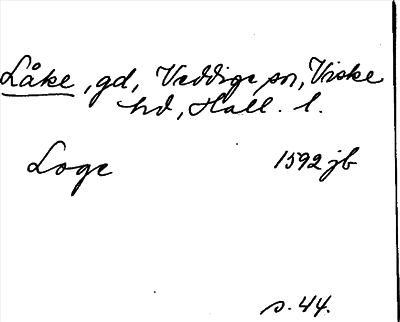 Låke, gd, Veddige sn, Viske
hd, Hall. l.
Loge 1592 jb
s. 44.